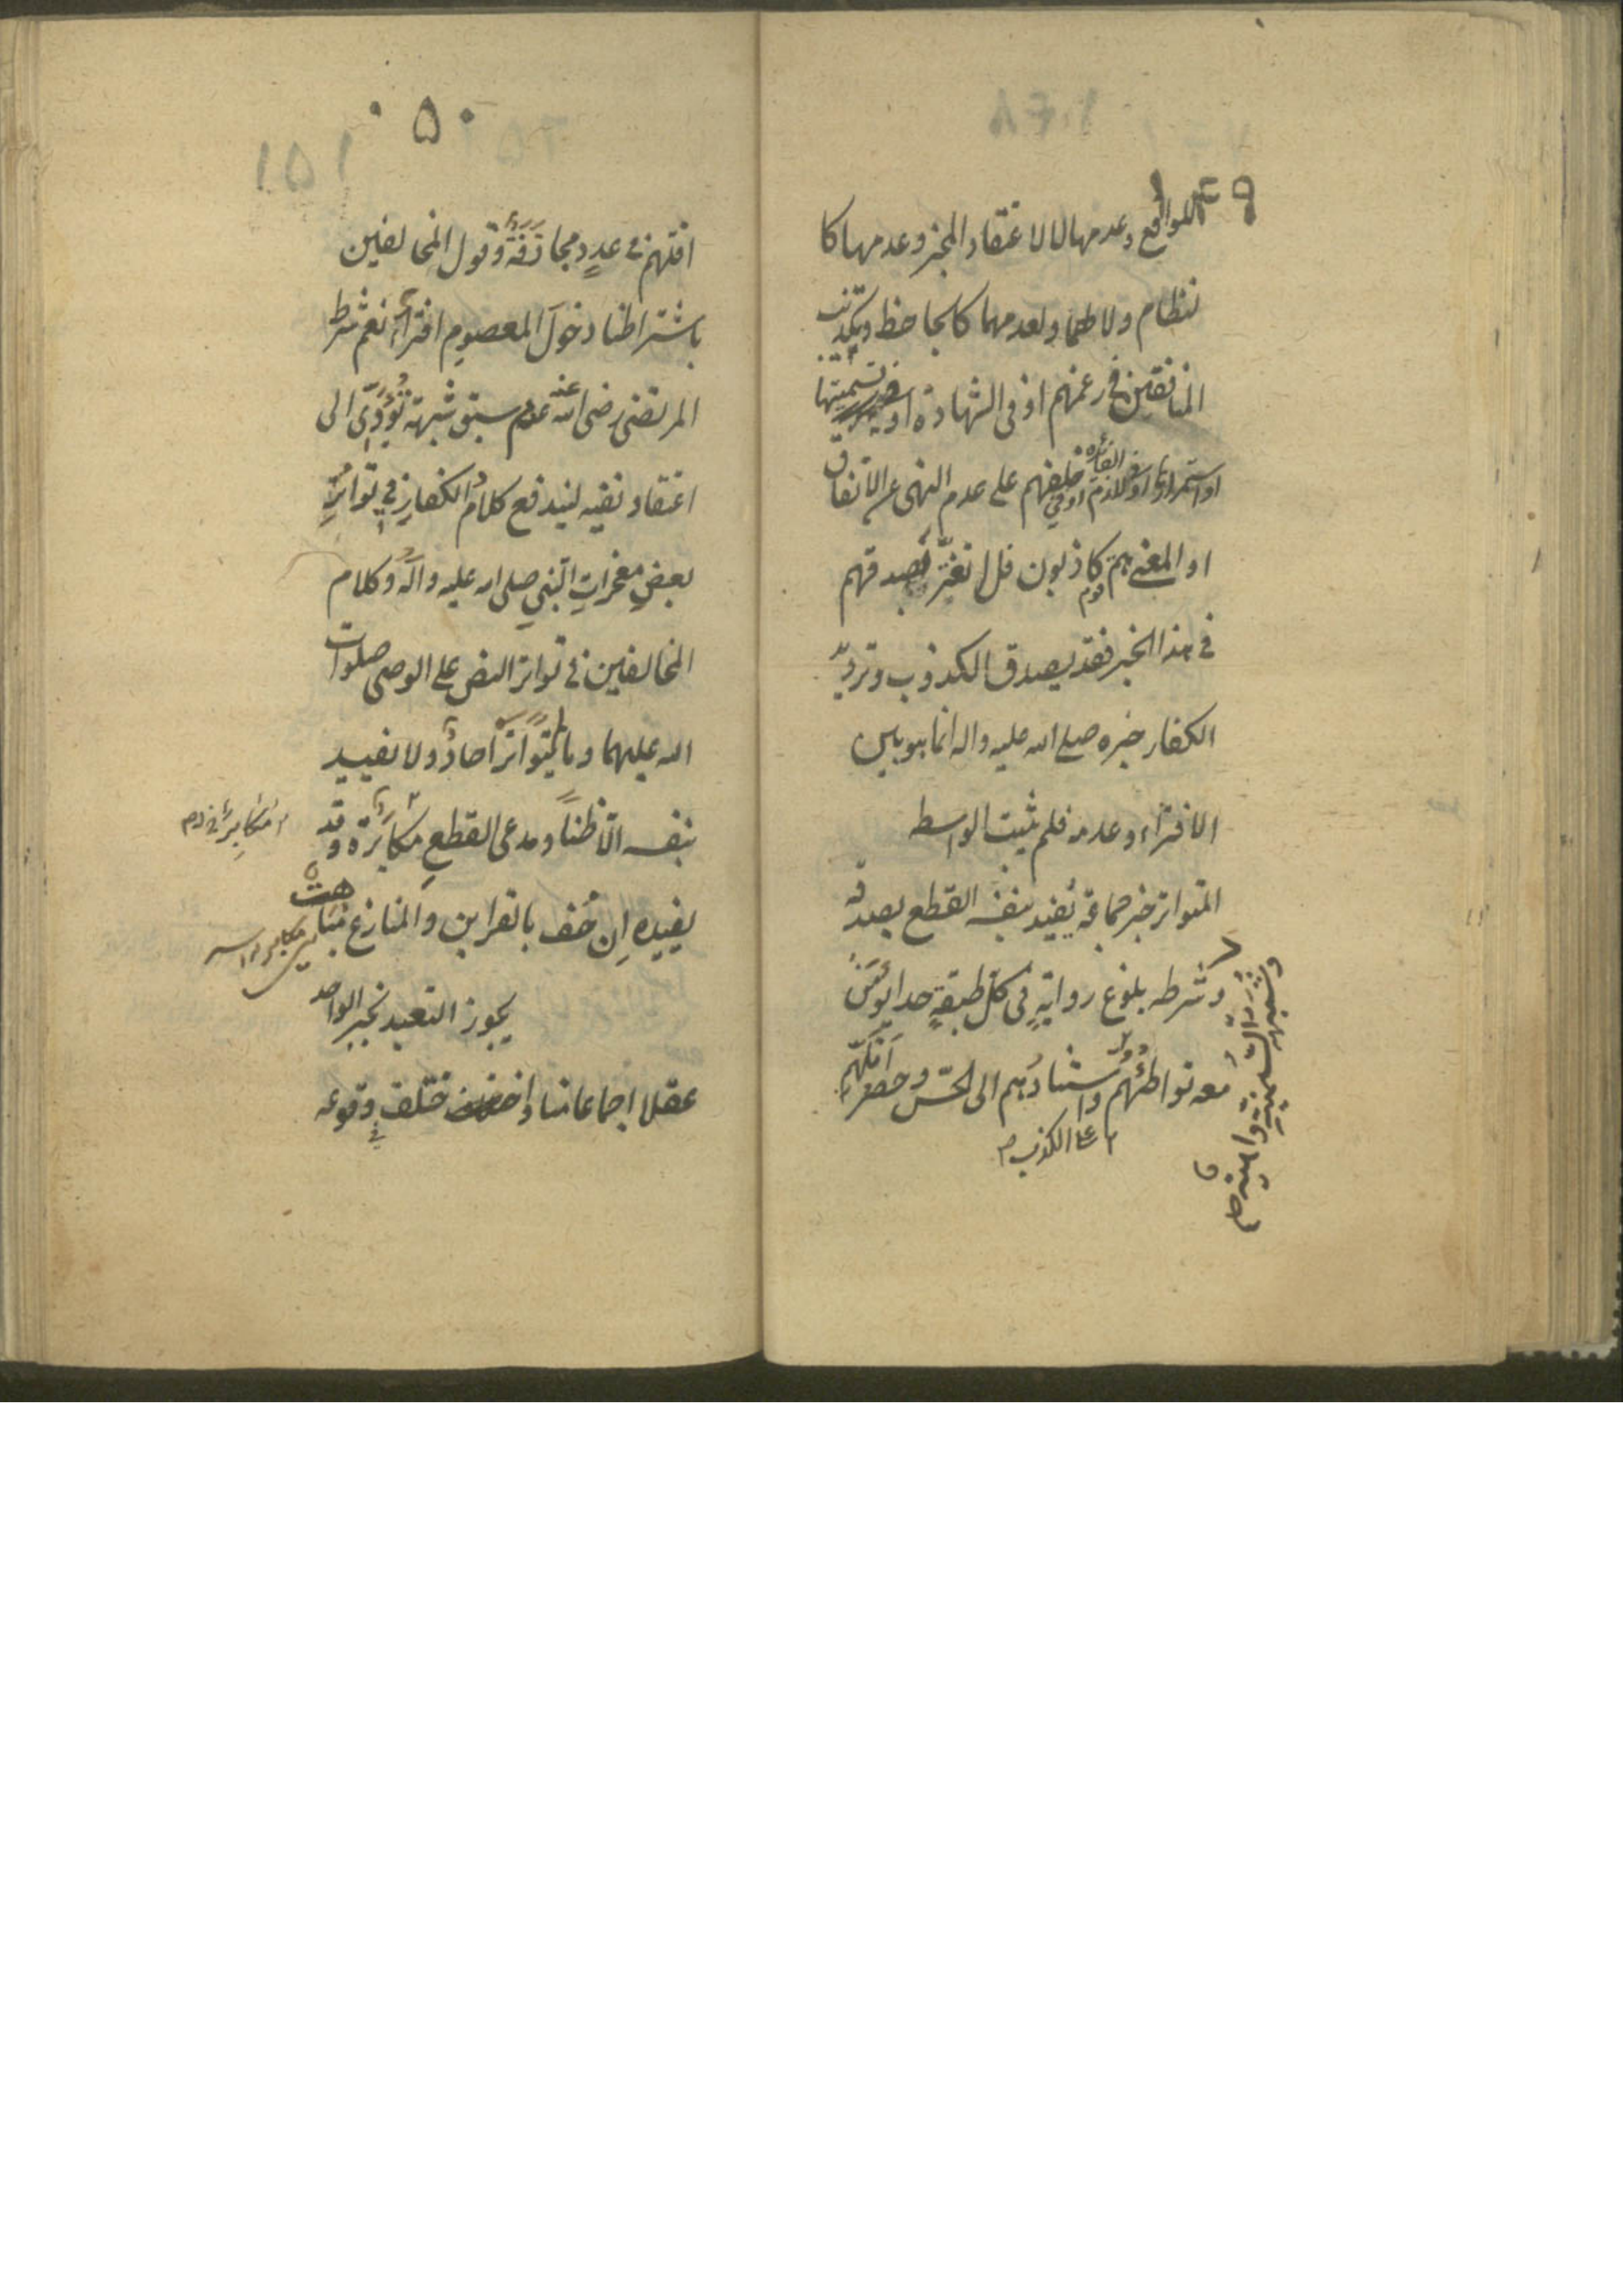 للواقع وعدمها لا لاعتقاد المخبر وعدمها كا
لنظام ولا لهما ولعدمهما كالجاحظ وتكذيب
المنافقين في زعمهم او في الشهادة او في تسميتها
او استمرارها او لازم الفائدة او في حلفهم على عدم النهي عن الانفاق
او المعنى هم قوم كاذبون فلا تغتر بصدقهم
في هذا الخبر فقد يصدق الكذوب وترديد
الكفار خبره صلى الله عليه واله انما هو بين
الافتراء وعدمه فلم يثبت الواسطه
المتواتر خبر جماعة يفيد بنفسه القطع بصدقه
وشرطه بلوغ رواته في كل طبقة حدا يؤمن
معه تواطئهم واستنادهم الى الحس وحصر اقلهم
٢ على الكذب م
وشبهة السمنية واهية
١٤٩
١٥٠
١٥١
اقلهم في عدد مجازفة وقول المخالفين
باشتراطنا دخول المعصوم افتراء نعم شرط
المرتضى رضى الله عنه عدم سبق شبهة تؤدى الى
اعتقاد نفيه ليندفع كلام الكفار في تواتر
بعض معجزات النبي صلى الله عليه وآله وكلام
المخالفين في تواتر النص على الوصي صلوات
الله عليهما وما لم يتواتر آحاد ولا يفيد
بنفسه الا ظنا ومدعى القطع مكابرة وقد
يفيده ان حف بالقراين والمنازع مباهت
يجوز التعبد بخبر الواحد
عقلا اجماعا منا واختلف في وقوعه